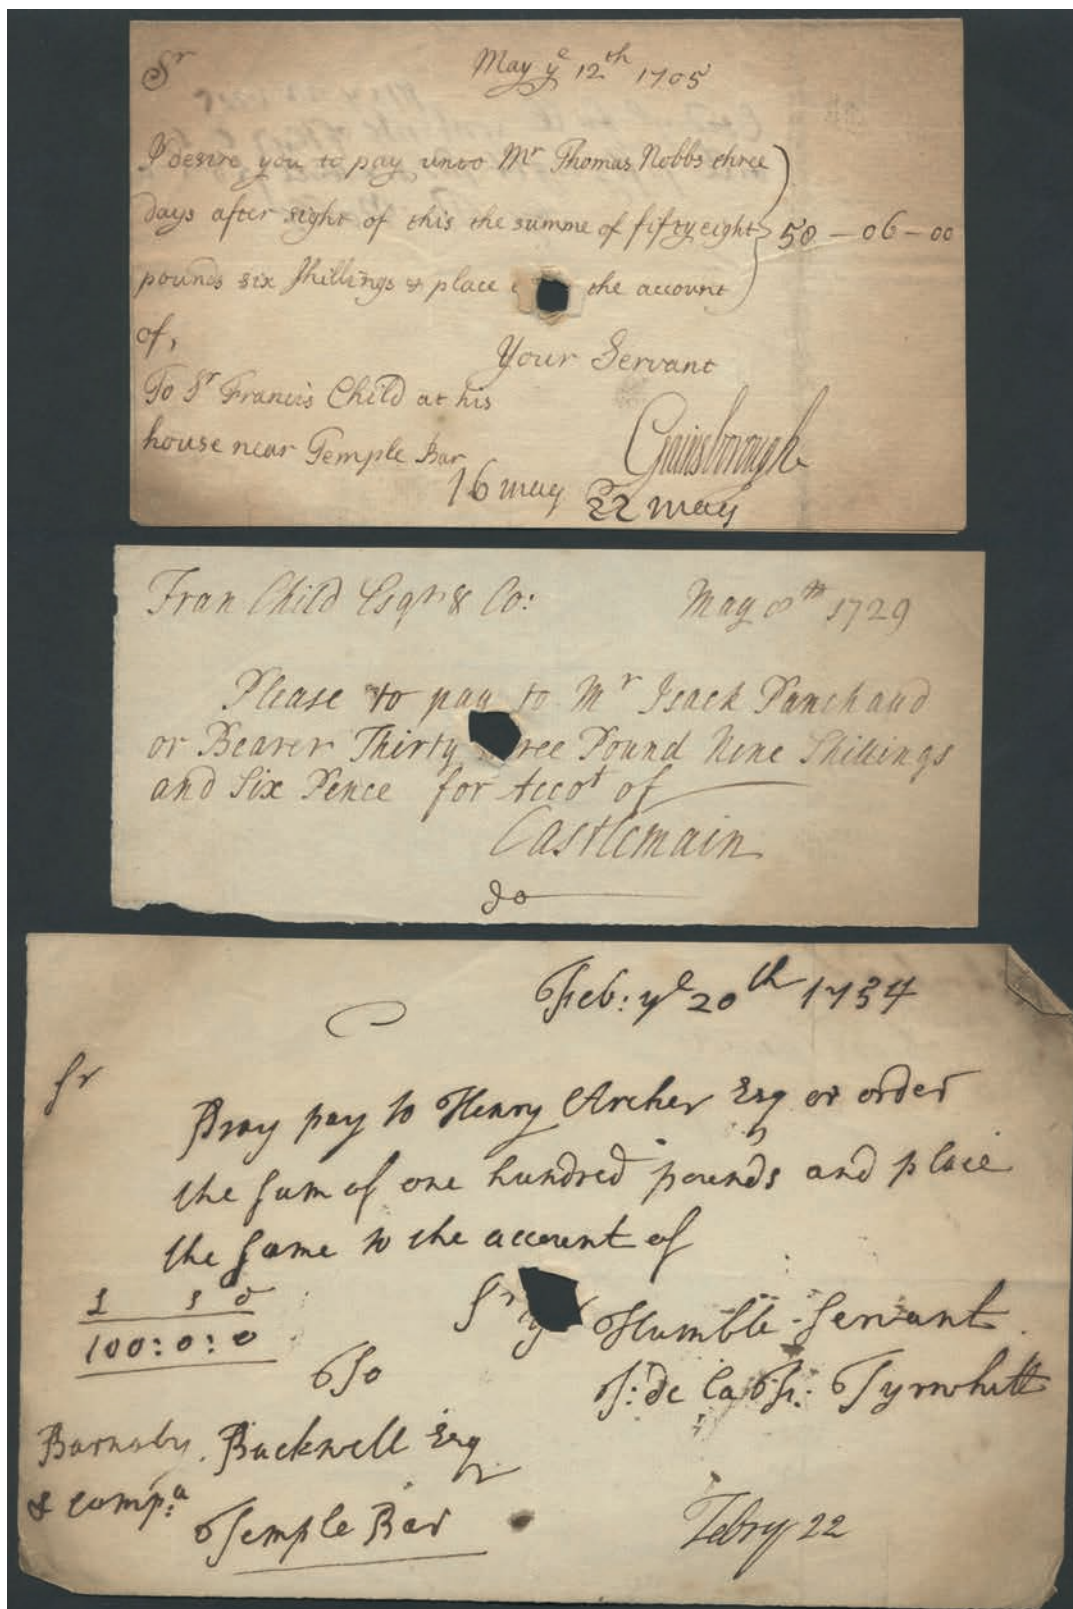 Sr
May ye 12th 1705
I desire you to pay unto Mr Thomas Nobbs three
days after sight of this the summe of fifty eight
58 - 06 - 00
pounds six shillings & place the account
of,
Your Servant
To Sr Francis Child at his
house near Temple Bar
Gainsborough
16 may 22 may
Fran Child Esqr & Co:
May 8th 1729
Please to pay to Mr Isack Panchaud
or Bearer Thirty ree Pound Nine Shillings
and Six Pence for Accot of
Castlemain
Feb: ye 20th 1734
Sr
Pray pay to Henry Archer Esq or order
the sum of one hundred pounds and place
the same to the account of
£ s d
100:0:0
Sr yr Humble Servant
To
J: de la Tyrwhitt
Barnaby Backwell Esq
& Comp:a
Temple Bar
Febry 22